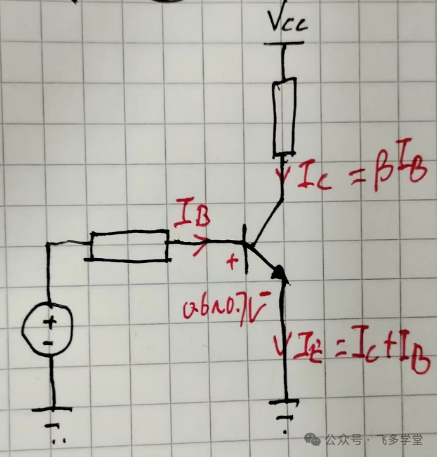 Vcc
Ic = βIB
IB
+
0.6~0.7V
-
+
-
IE = Ic + IB
公众号 · 飞多学堂